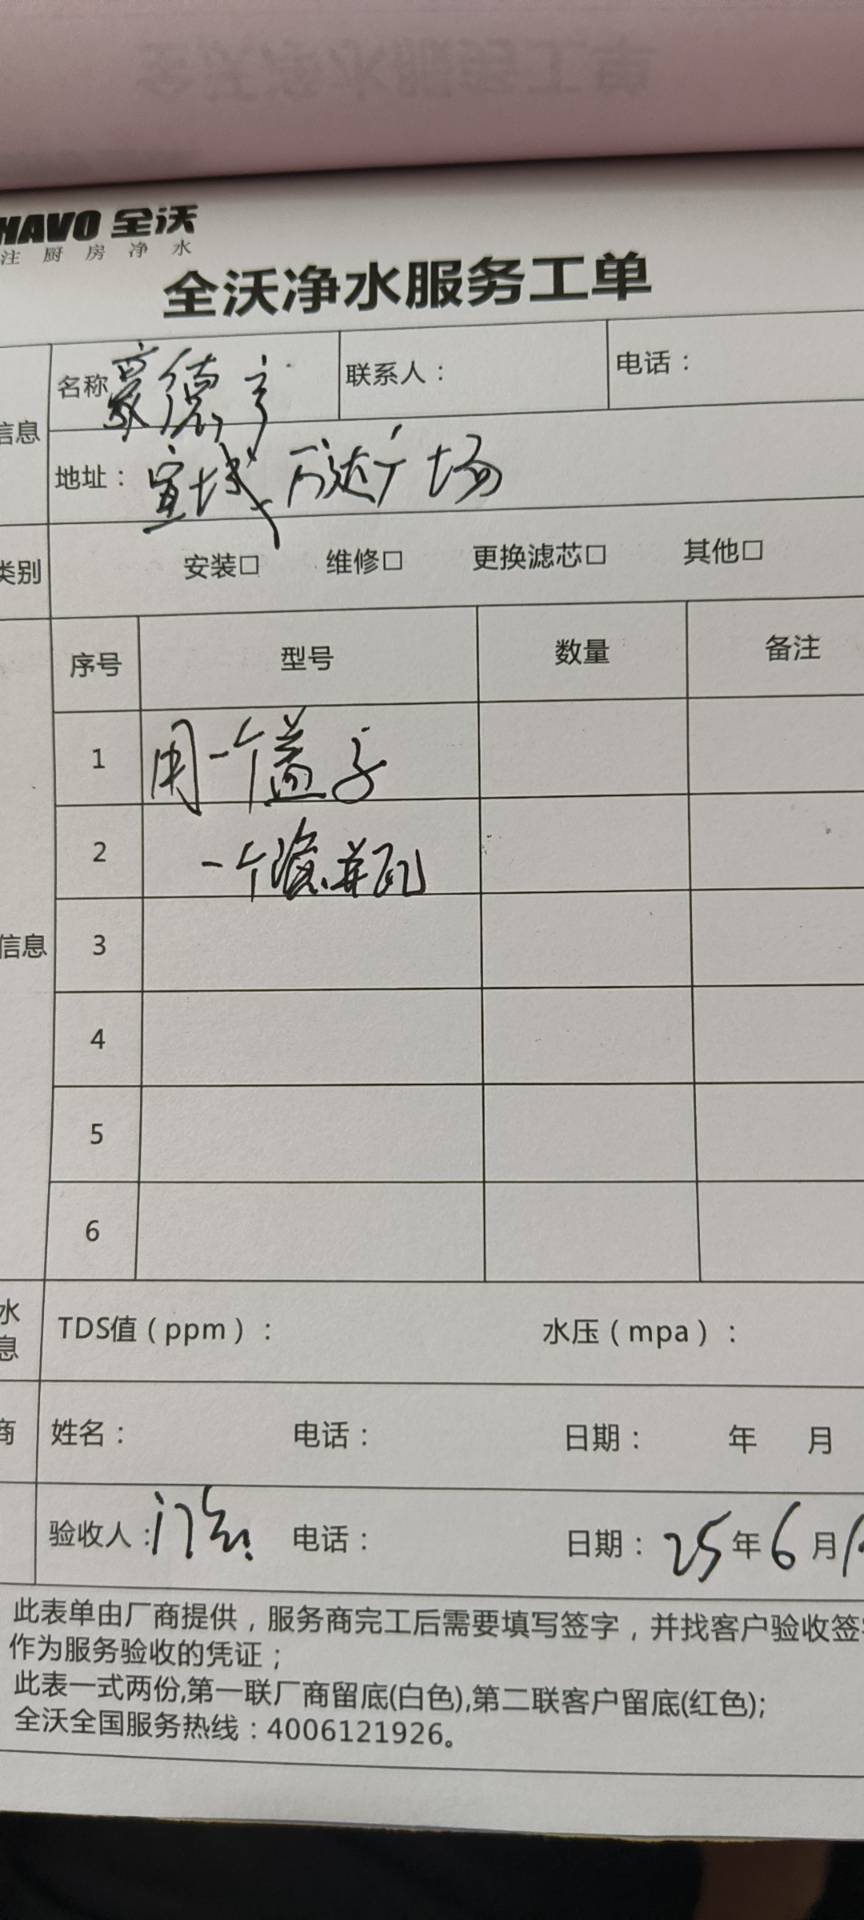 HAVO 全沃
注厨房净水
全沃净水服务工单
信息
名称 豪德亨 联系人： 电话：
地址： 宣城万达广场
类别 安装□ 维修□ 更换滤芯□ 其他□
序号 型号 数量 备注
1 用一个盖子
2 一个滤瓶
信息
3
4
5
6
水
息
TDS值（ppm）： 水压（mpa）：
商 姓名： 电话： 日期： 年 月
验收人： 电话： 日期： 25年6月
此表单由厂商提供，服务商完工后需要填写签字，并找客户验收签字
作为服务验收的凭证；
此表一式两份,第一联厂商留底(白色),第二联客户留底(红色);
全沃全国服务热线：4006121926。